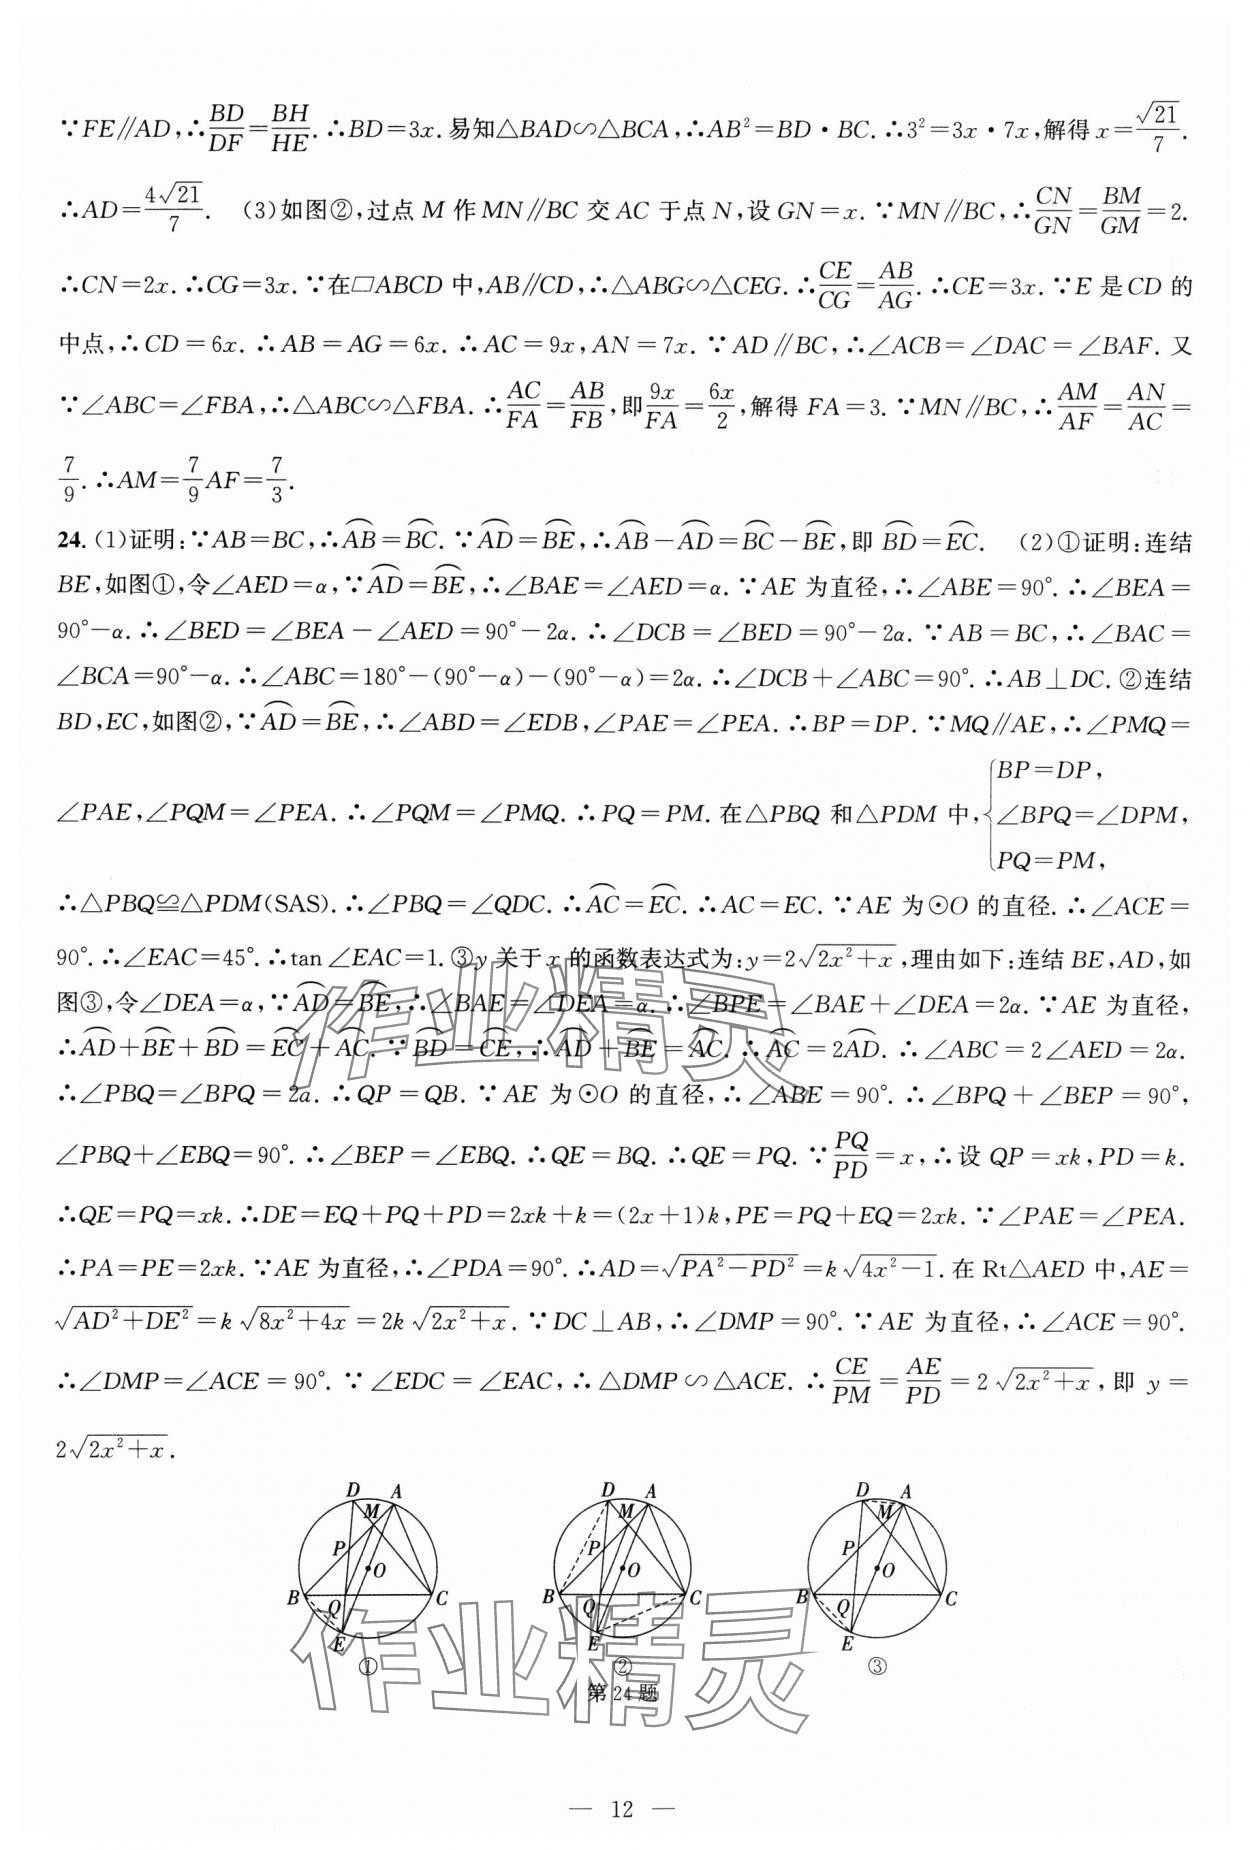 ∵FE∥AD,∴BD/DF=BH/HE.∴BD=3x.易知△BAD∽△BCA,∴AB²=BD·BC.∴3²=3x·7x,解得x=√21/7.
∴AD=4√21/7. (3)如图②,过点M作MN∥BC交AC于点N,设GN=x.∵MN∥BC,∴CN/GN=BM/GM=2.
∴CN=2x.∴CG=3x.∵在□ABCD中,AB∥CD,∴△ABG∽△CEG.∴CE/CG=AB/AG.∴CE=3x.∵E是CD的
中点,∴CD=6x.∴AB=AG=6x.∴AC=9x,AN=7x.∵AD∥BC,∴∠ACB=∠DAC=∠BAF.又
∵∠ABC=∠FBA,∴△ABC∽△FBA.∴AC/FA=AB/FB,即9x/FA=6x/2,解得FA=3.∵MN∥BC,∴AM/AF=AN/AC=
7/9.∴AM=7/9AF=7/3.
24.(1)证明:∵AB=BC,∴⌒AB=⌒BC.∵⌒AD=⌒BE,∴⌒AB-⌒AD=⌒BC-⌒BE,即⌒BD=⌒EC. (2)①证明:连结
BE,如图①,令∠AED=α,∵⌒AD=⌒BE,∴∠BAE=∠AED=α.∵AE为直径,∴∠ABE=90°.∴∠BEA=
90°-α.∴∠BED=∠BEA-∠AED=90°-2α.∴∠DCB=∠BED=90°-2α.∵AB=BC,∴∠BAC=
∠BCA=90°-α.∴∠ABC=180°-(90°-α)-(90°-α)=2α.∴∠DCB+∠ABC=90°.∴AB⊥DC.②连结
BD,EC,如图②,∵⌒AD=⌒BE,∴∠ABD=∠EDB,∠PAE=∠PEA.∴BP=DP.∵MQ∥AE,∴∠PMQ=
∠PAE,∠PQM=∠PEA.∴∠PQM=∠PMQ.∴PQ=PM.在△PBQ和△PDM中,{BP=DP,
∠BPQ=∠DPM,
PQ=PM,
∴△PBQ≌△PDM(SAS).∴∠PBQ=∠QDC.∴⌒AC=⌒EC.∴AC=EC.∵AE为⊙O的直径.∴∠ACE=
90°.∴∠EAC=45°.∴tan∠EAC=1.③y关于x的函数表达式为:y=2√(2x²+x),理由如下:连结BE,AD,如
图③,令∠DEA=α,∵⌒AD=⌒BE,∴∠BAE=∠DEA=α.∴∠BPE=∠BAE+∠DEA=2α.∵AE为直径,
∴⌒AD+⌒BE+⌒BD=⌒EC+⌒AC.∵⌒BD=⌒CE,∴⌒AD+⌒BE=⌒AC.∴⌒AC=2⌒AD.∴∠ABC=2∠AED=2α.
∴∠PBQ=∠BPQ=2α.∴QP=QB.∵AE为⊙O的直径,∴∠ABE=90°.∴∠BPQ+∠BEP=90°,
∠PBQ+∠EBQ=90°.∴∠BEP=∠EBQ.∴QE=BQ.∴QE=PQ.∵PQ/PD=x,∴设QP=xk,PD=k.
∴QE=PQ=xk.∴DE=EQ+PQ+PD=2xk+k=(2x+1)k,PE=PQ+EQ=2xk.∵∠PAE=∠PEA.
∴PA=PE=2xk.∵AE为直径,∴∠PDA=90°.∴AD=√(PA²-PD²)=k√(4x²-1).在Rt△AED中,AE=
√(AD²+DE²)=k√(8x²+4x)=2k√(2x²+x).∵DC⊥AB,∴∠DMP=90°.∵AE为直径,∴∠ACE=90°.
∴∠DMP=∠ACE=90°.∵∠EDC=∠EAC,∴△DMP∽△ACE.∴CE/PM=AE/PD=2√(2x²+x),即y=
2√(2x²+x).
D A M P O B C Q E
①
D A M P O B C Q E
②
D A M P O B C Q E
③
第24题
作业精灵
作业精灵
— 12 —